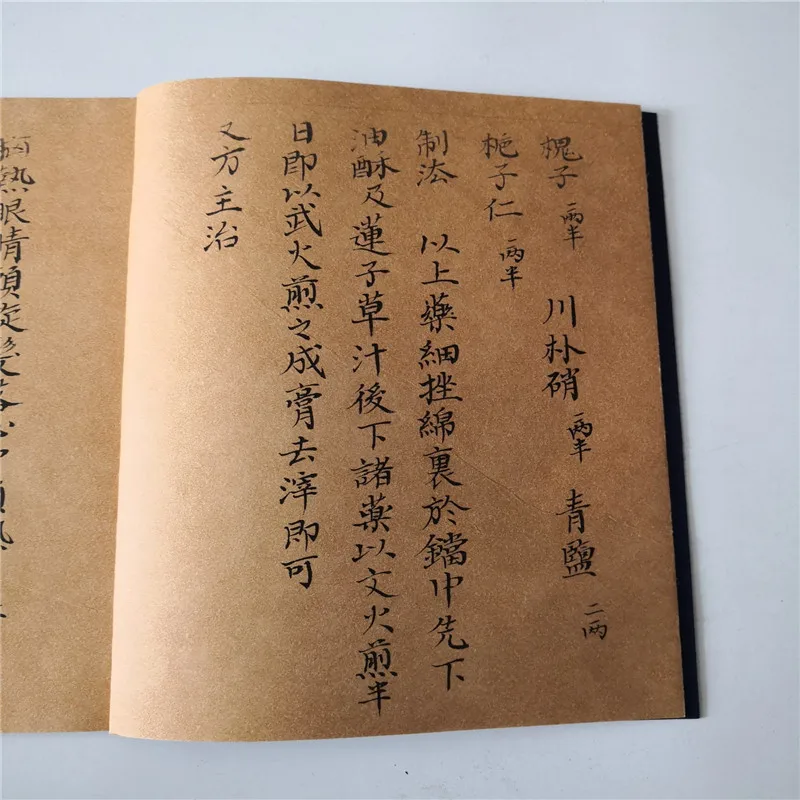 槐子 一两半 川朴硝 一两半 青鹽 二两
栀子仁 一两半
制法 以上藥細挫綿裏於鐺中先下
油酥及蓮子草汁後下諸藥以文火煎半
日即以武火煎之成膏去滓即可
又方主治
熱眼睛頭旋髮落心中煩熱